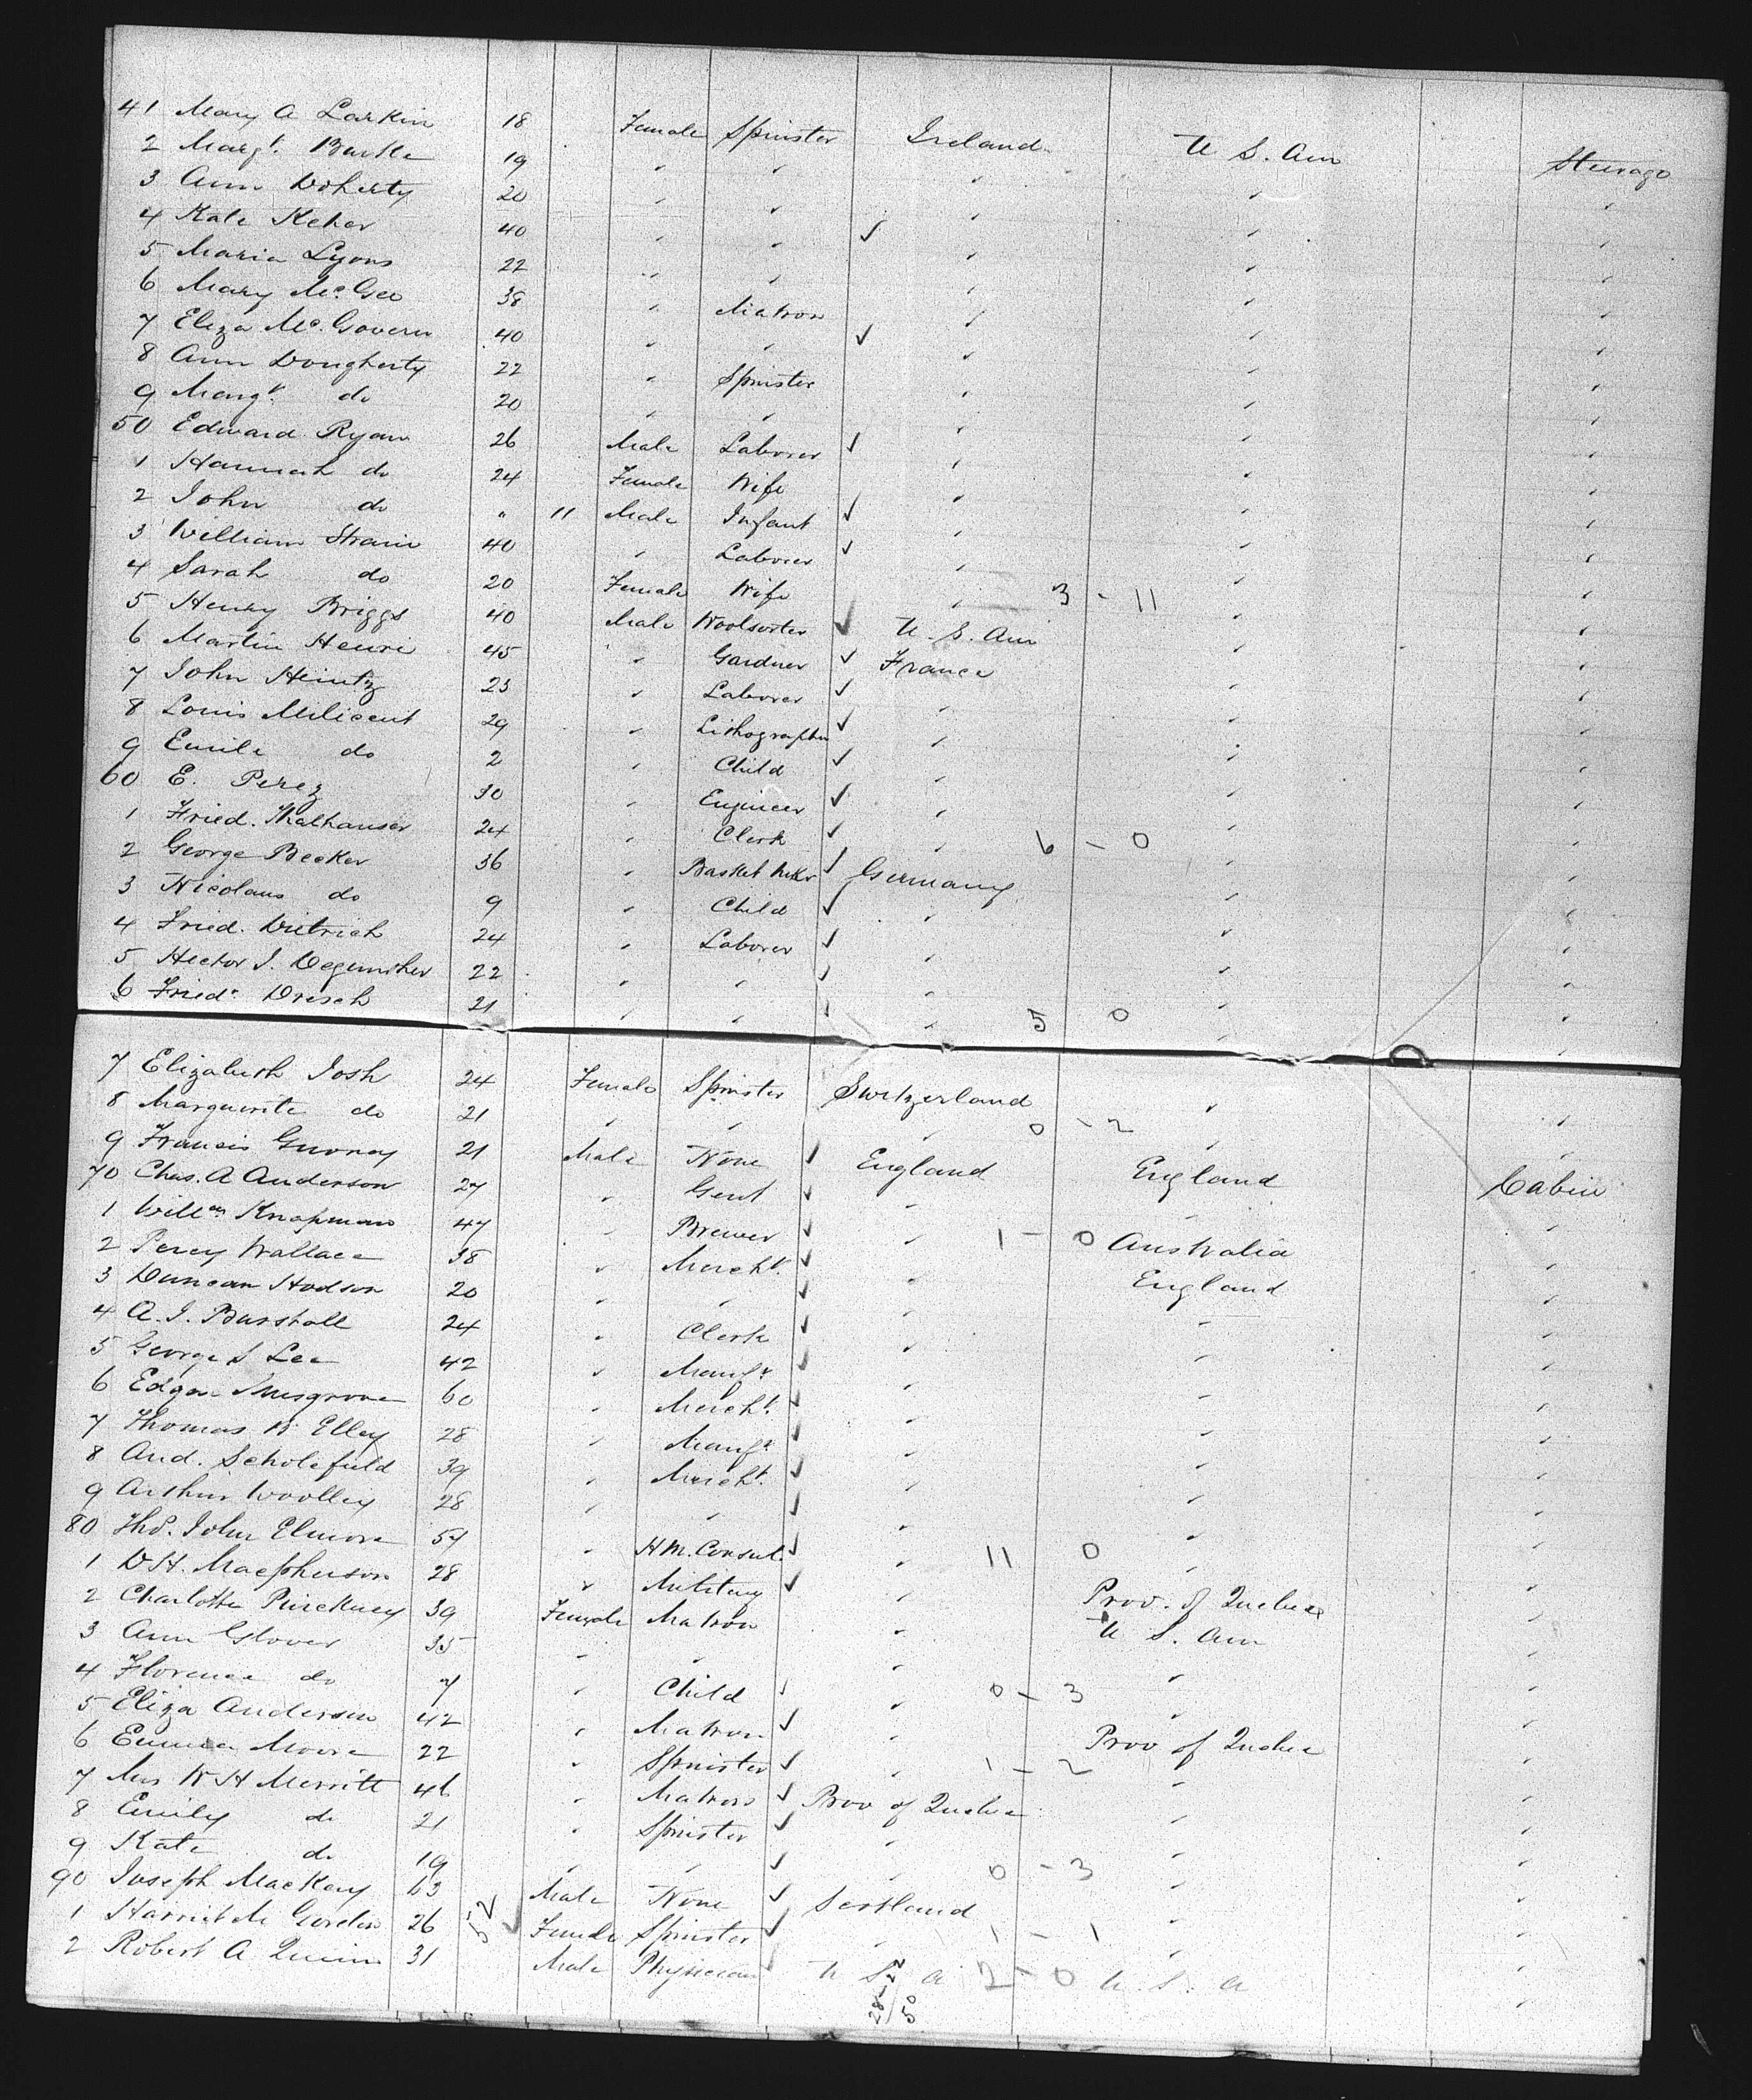 41 Mary A Larkin 18 Female Spinster Ireland U S. Am Steerage
2 Margt. Burke 19 " " " " "
3 Ann Doherty 20 " " " " "
4 Kate Keher 40 " " ✓ " " "
5 Maria Lyons 22 " " " " "
6 Mary McGee 38 " Matron " " "
7 Eliza McGovern 40 " " ✓ " " "
8 Ann Dougherty 22 " Spinster " " "
9 Margt. do 20 " " " " "
50 Edward Ryan 26 Male Laborer ✓ " " "
1 Hannah do 24 Female Wife " " "
2 John do " 11 Male Infant ✓ " " "
3 William Strain 40 " Laborer ✓ " " "
4 Sarah do 20 Female Wife " 3 - 11 " "
5 Henry Briggs 40 Male Woolsorter ✓ U. S. Am " "
6 Martin Henri 45 " Gardner ✓ France " "
7 John Heintz 23 " Laborer ✓ " " "
8 Louis Milicent 29 " Lithographer ✓ " " "
9 Emile do 2 " Child ✓ " " "
60 E. Perez 30 " Engineer ✓ " " "
1 Fried. Thalhauser 24 " Clerk ✓ " 6 - 0 " "
2 George Becker 36 " Basket Mkr ✓ Germany " "
3 Nicolaus do 9 " Child ✓ " " "
4 Fried. Dietrich 24 " Laborer ✓ " " "
5 Hector J. 22 " " ✓ " " "
6 Friedr. Dresch 21 " " ✓ " 5 0 " "
7 Elizabeth Josh 24 Female Spinster Switzerland " "
8 Marguerite do 21 " " " 0 - 2 " "
9 Francis Gurney 21 Male None ✓ England England Cabin
70 Chas. A Anderson 27 " Gent ✓ " " "
1 Willm Knapman 47 " Brewer ✓ " 1 - 0 Australia "
2 Percy Wallace 38 " Mercht. ✓ " England "
3 Duncan Hodson 20 " " ✓ " " "
4 A. J. Burstall 24 " Clerk ✓ " " "
5 George S Lee 42 " Manfr ✓ " " "
6 Edgar Musgrove 60 " Mercht. ✓ " " "
7 Thomas W Elley 28 " Manfr ✓ " " "
8 And. Scholefield 39 " Mercht. ✓ " " "
9 Arthur Woolley 28 " " ✓ " " "
80 Thos. John Elmore 57 " HM. Consul ✓ " 11 0 " "
1 D H. Macpherson 28 " Military ✓ " Prov. of Quebec "
2 Charlotte Pinckney 39 Female Matron " U S. Am "
3 Ann Glover 35 " " " " "
4 Florence do 7 " Child ✓ " 0 - 3 " "
5 Eliza Anderson 42 " Matron ✓ " Prov of Quebec "
6 Emma Moore 22 " Spinster ✓ " 1 - 2 " "
7 Mrs W H Merritt 46 " Matron ✓ Prov of Quebec " "
8 Emily do 21 " Spinster ✓ " " "
9 Kate do 19 " " ✓ " 0 - 3 " "
90 Joseph MacKay 63 Male None ✓ Scotland " "
1 Harriet M Gordon 26 52 ✓ Female Spinster ✓ " 1 - 1 " "
2 Robert A Quinn 31 Male Physician ✓ U S A 2 - 0 U. S. A "
28-22
50